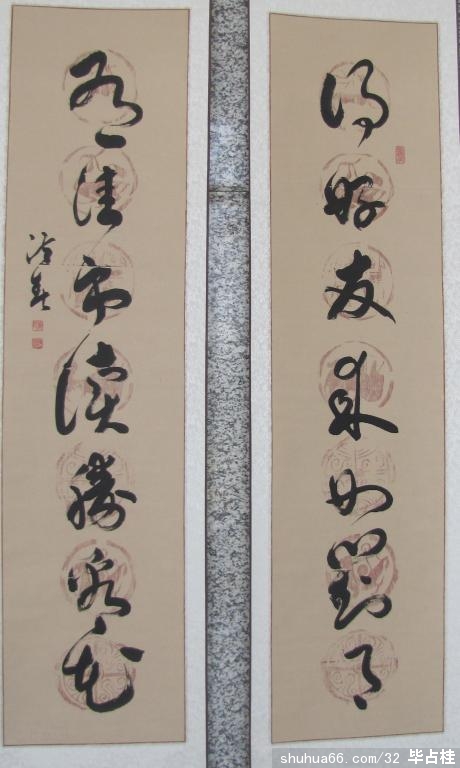 得好友來如對月
有佳書讀勝看花
shuhua66.com/32 毕占桂